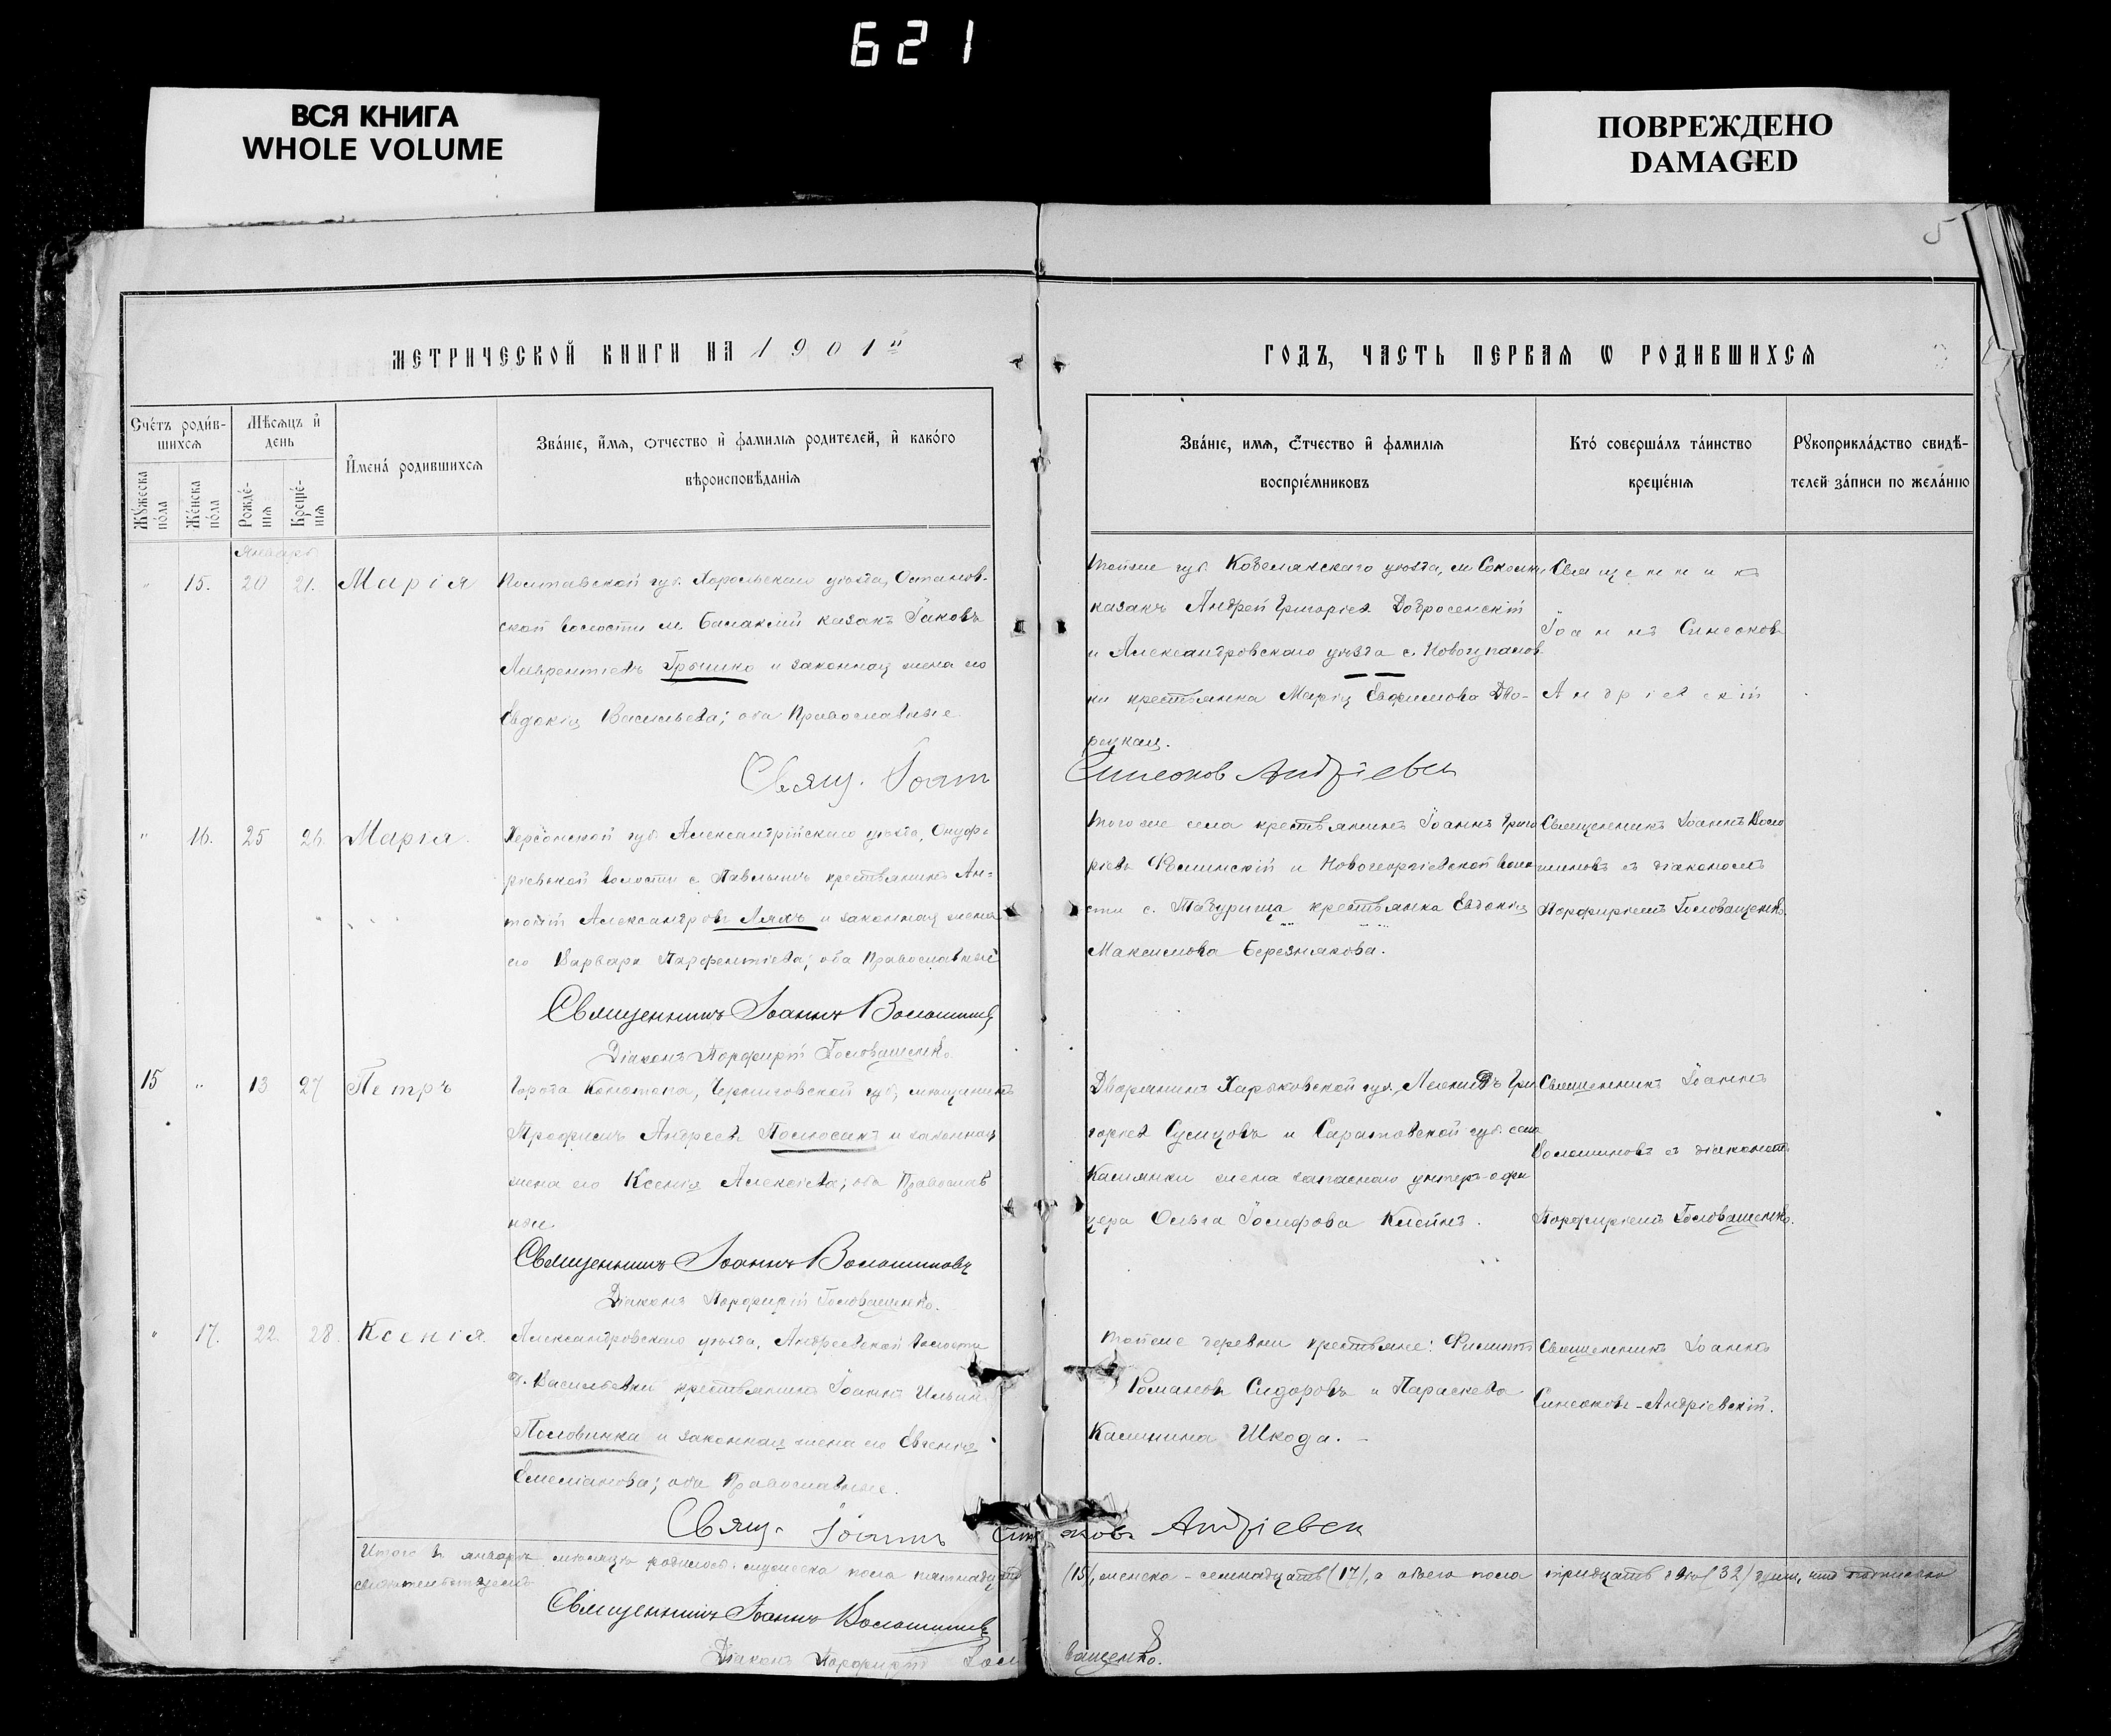 621
ВСЯ КНИГА
WHOLE VOLUME
ПОВРЕЖДЕНО
DAMAGED
5
МЕТРИЧЕСКОЙ КНИГИ НА 1901 й
ГОДЪ, ЧАСТЬ ПЕРВАЯ Ѡ РОДИВШИХСЯ
Счетъ родив-
шихся
Мѣсяцъ и
день
Имена родившихся
Званіе, имя, отчество и фамилія родителей, и какого
вѣроисповѣданія
Мужеска
пола
Женска
пола
Рожде-
нія
Креще-
нія
Званіе, имя, отчество и фамилія
воспріемниковъ
Кто совершалъ таинство
крещенія
Рукоприкладство свидѣ-
телей записи по желанію
Январь
" 15. 20 21. Марія
Полтавской губ. Хорольскаго уѣзда, Остапов-
ской волости м. Балаклій казакъ Іаковъ
Лаврентіевъ Грышко и законная жена его
Евдокія Васильева; оба Православные
Свящ. Іоан
Тойже губ. Кобелякскаго уѣзда, м. Соколки
казакъ Андрей Григоріев Добросенскій
и Александровскаго уѣзда с. Новогупалов-
ки крестьянка Марія Евфимова Дво-
рецкая.
Синеоков Андріевск
Священникъ
Іоаннъ Синеоков
Андріевскій
" 16. 25 26. Марія.
Херсонской губ. Александрійскаго уѣзда, Онуф-
ріевской волости с. Павлышъ крестьянинъ Ан-
тоній Александровъ Ляхъ и законная жена
его Варвара Парфентіева; оба Православные
Священникъ Іоаннъ Волошинов
Діаконъ Порфирій Головащенко.
Того же села крестьянинъ Іоаннъ Григо
ріевъ Фѣлинскій и Новогеоргіевской воло
сти с. Табурища крестьянка Евдокія
Максимова Березнякова.
Священникъ Іоаннъ Воло
шиновъ съ діакономъ
Порфиріемъ Головащенко.
15 " 13 27 Петръ
Города Конотопа, Черниговской губ, мѣщанинъ
Трофимъ Андреев Полосакъ и законная
жена его Ксенія Алексіева; оба Православ
ные.
Священникъ Іоаннъ Волошиновъ
Діаконъ Порфирій Головащенко.
Дворянинъ Харьковской губ, Леонидъ Гри
горіев Сумцовъ и Саратовской губ. села
Касиянки жена запаснаго унтеръ-офи
цера Ольга Іосифова Клейнъ.
Священникъ Іоаннъ
Волошиновъ съ діакономъ
Порфиріемъ Головащенко.
" 17. 22. 28. Ксенія.
Александровскаго уѣзда, Андреевской волости
д. Васильевки крестьянинъ Іоаннъ Ильин
Половинка и законная жена его Евгенія
Емеліанова; оба Православные.
Свящ. Іоаннъ Синеоковъ Андріевск
Тойже деревни крестьяне: Филиппъ
Романовъ Сидоровъ и Параскева
Калинина Шкода.
Священникъ Іоаннъ
Синеоковъ-Андріевскій.
Итого въ январѣ мѣсяцѣ родилось: мужеска пола пятнадцать (15), женска - семнадцать (17), а обоего пола тридцать два (32) души, что подписью
свидѣтельствуемъ
Священникъ Іоаннъ Волошиновъ
Діаконъ Порфирій Головащенко.